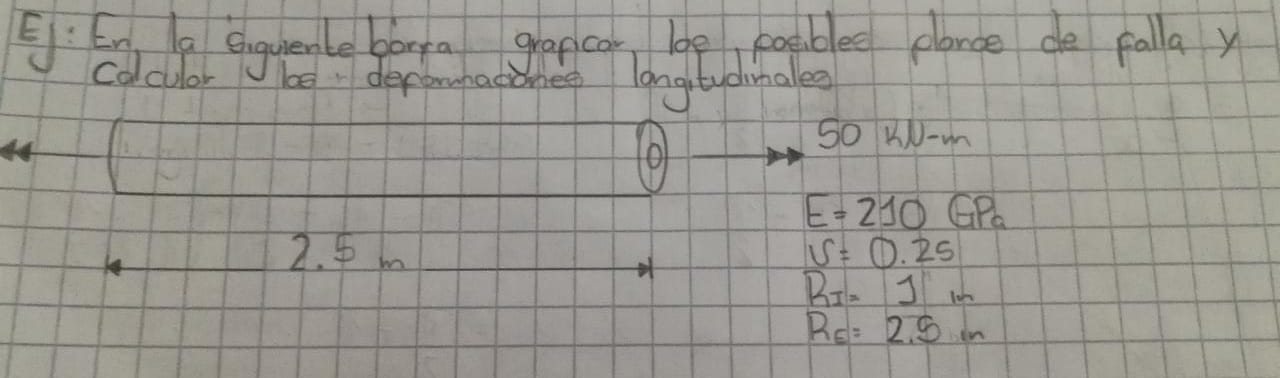 Ej: En la siguiente barra graficar los posibles planos de falla y
Calcular las deformaciones longitudinales
50 KN-m
E = 210 GPa
2.5 m
V = 0.25
RI = 1 in
RE = 2.5 in